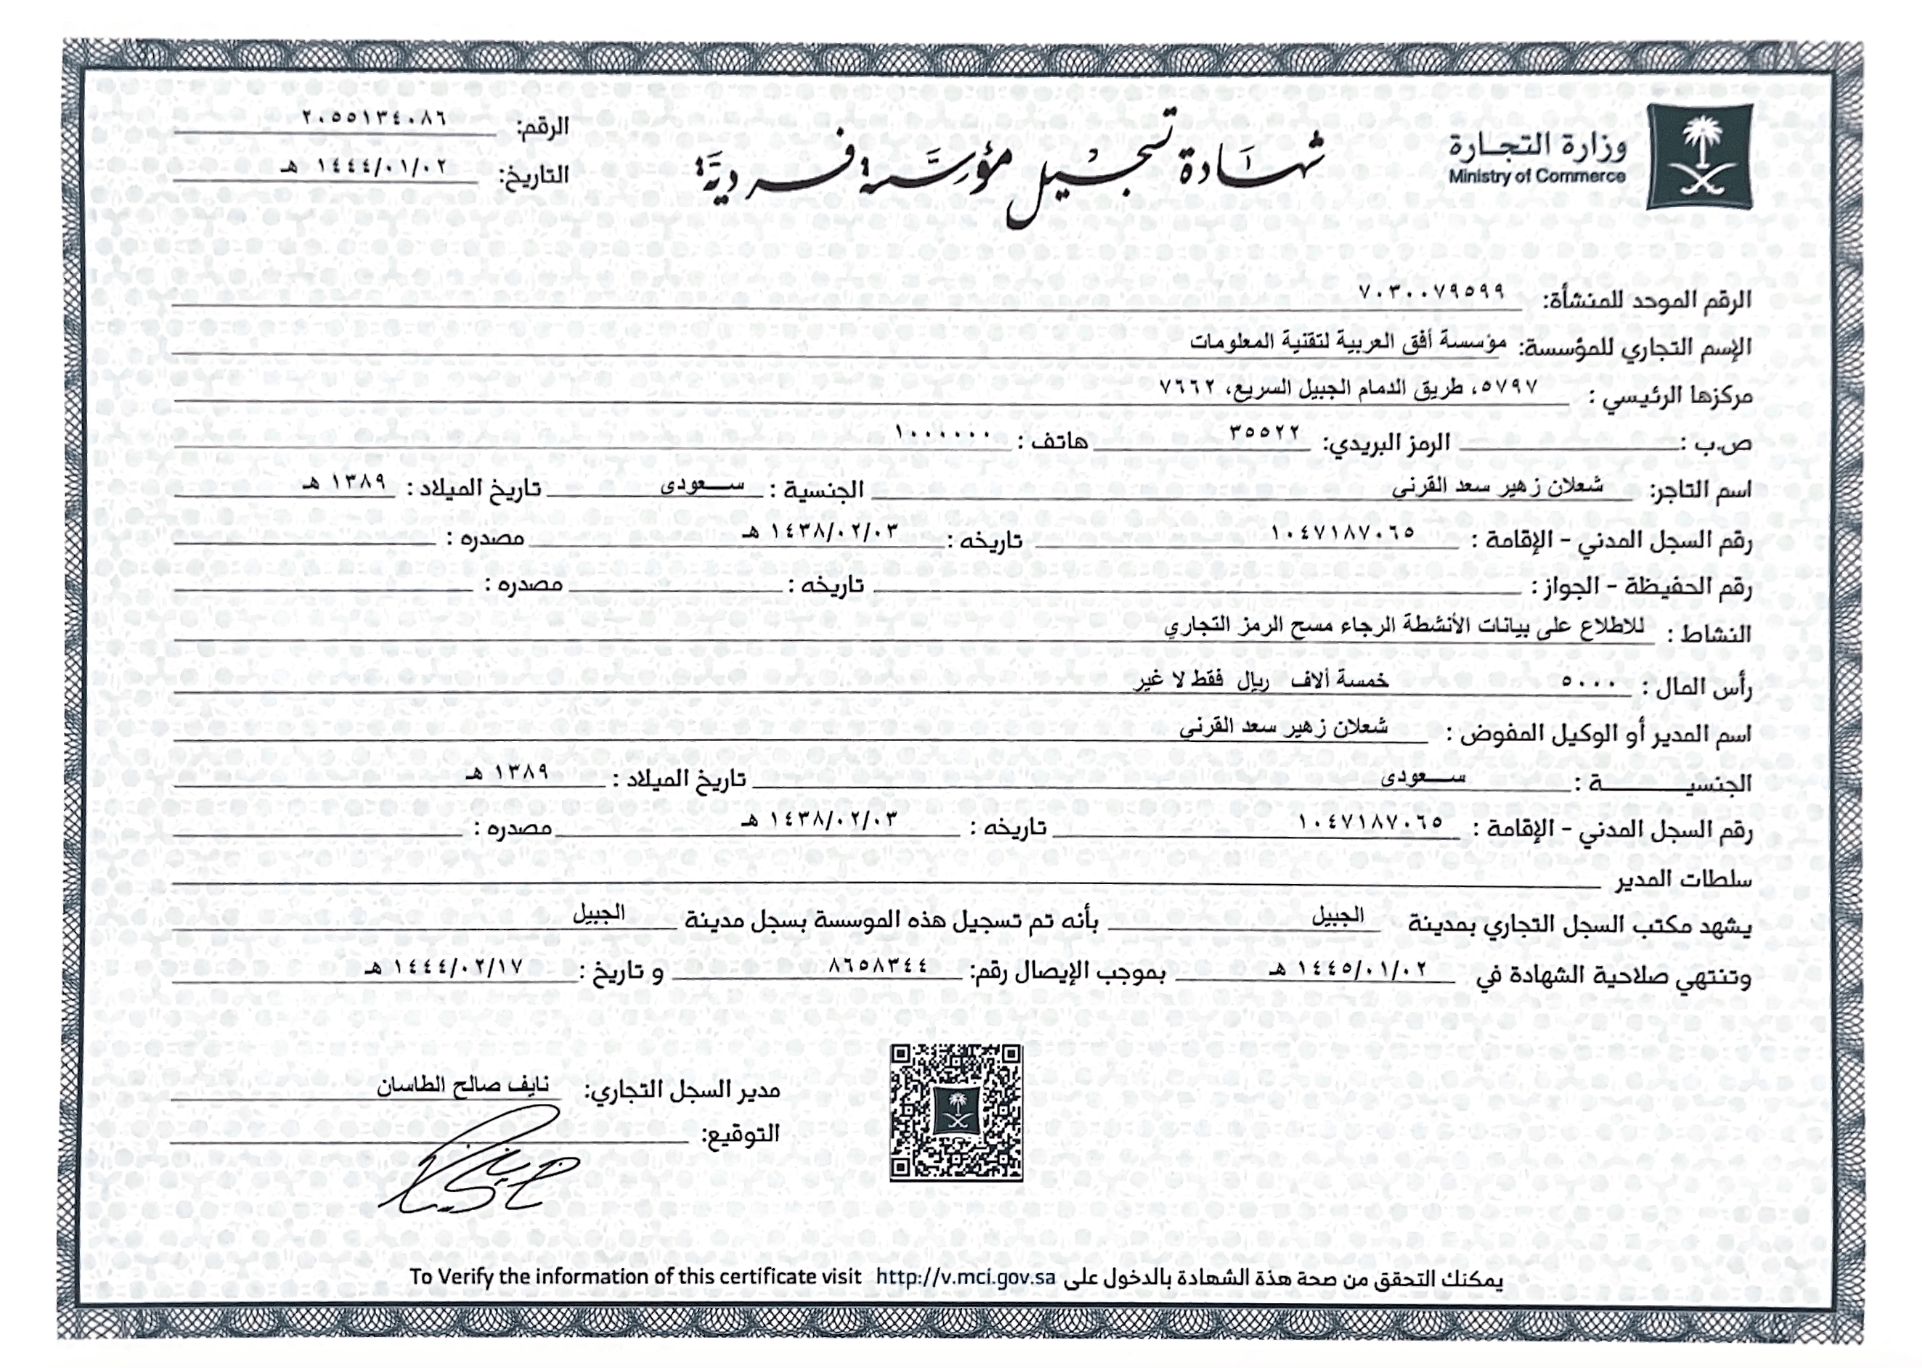 وزارة التجارة
Ministry of Commerce
شهادة تسجيل مؤسسة فردية
الرقم: ٢٠٥٥١٣٤٠٨٦
التاريخ: ١٤٤٤/٠١/٠٢ هـ
الرقم الموحد للمنشأة: ٧٠٣٠٠٧٩٥٩٩
الإسم التجاري للمؤسسة: مؤسسة أفق العربية لتقنية المعلومات
مركزها الرئيسي : ٥٧٩٧، طريق الدمام الجبيل السريع، ٧٦٦٢
ص.ب : الرمز البريدي: ٣٥٥٢٢ هاتف : ١٠٠٠٠٠٠
اسم التاجر: شعلان زهير سعد القرني الجنسية : سـعودى تاريخ الميلاد : ١٣٨٩ هـ
رقم السجل المدني - الإقامة : ١٠٤٧١٨٧٠٦٥ تاريخه : ١٤٣٨/٠٢/٠٣ هـ مصدره :
رقم الحفيظة - الجواز : تاريخه : مصدره :
النشاط : للاطلاع على بيانات الأنشطة الرجاء مسح الرمز التجاري
رأس المال : ٥٠٠٠ خمسة ألاف ريال فقط لا غير
اسم المدير أو الوكيل المفوض : شعلان زهير سعد القرني
الجنسيـــــة : سـعودى تاريخ الميلاد : ١٣٨٩ هـ
رقم السجل المدني - الإقامة : ١٠٤٧١٨٧٠٦٥ تاريخه : ١٤٣٨/٠٢/٠٣ هـ مصدره :
سلطات المدير
يشهد مكتب السجل التجاري بمدينة الجبيل بأنه تم تسجيل هذه الموسسة بسجل مدينة الجبيل
وتنتهي صلاحية الشهادة في ١٤٤٥/٠١/٠٢ هـ بموجب الإيصال رقم: ٨٦٥٨٣٤٤ و تاريخ : ١٤٤٤/٠٢/١٧ هـ
مدير السجل التجاري: نايف صالح الطاسان
التوقيع:
يمكنك التحقق من صحة هذة الشهادة بالدخول على http://v.mci.gov.sa To Verify the information of this certificate visit